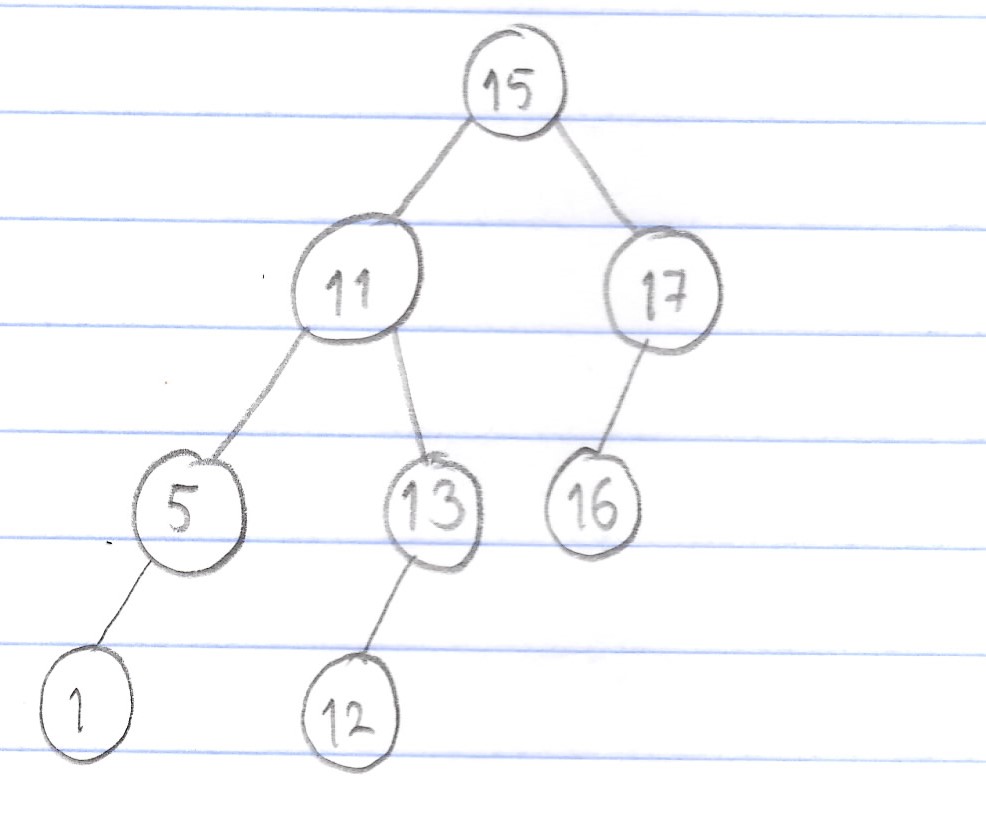 15
11 17
5 13 16
1 12